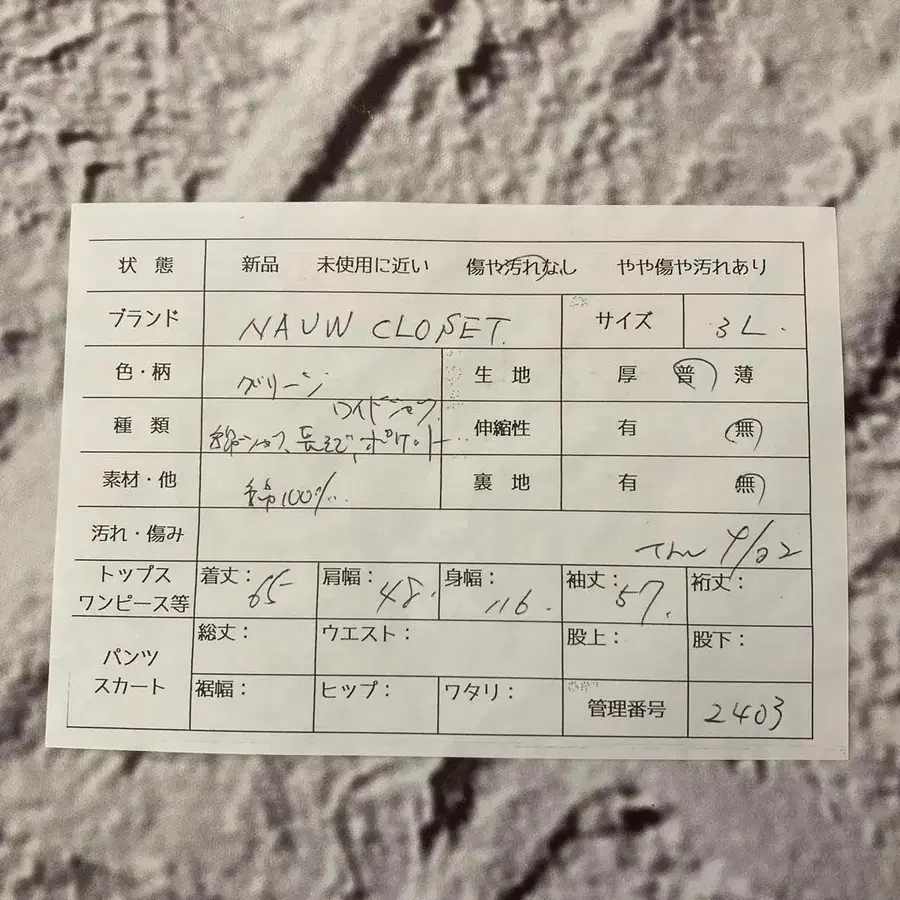 状態 新品 未使用に近い 傷や汚れなし やや傷や汚れあり
ブランド NAUW CLOSET. サイズ 3L.
色・柄 グリーン 生地 厚 普 薄
ワイドシャツ
種類 綿シャツ、長そで、ポケット 伸縮性 有 無
素材・他 綿100%. 裏地 有 無
汚れ・傷み 9/22
トップス
ワンピース等 着丈: 65 肩幅: 48. 身幅: 116. 袖丈: 57. 裄丈:
パンツ
スカート
総丈: ウエスト: 股上: 股下:
裾幅: ヒップ: ワタリ: 管理番号 2403